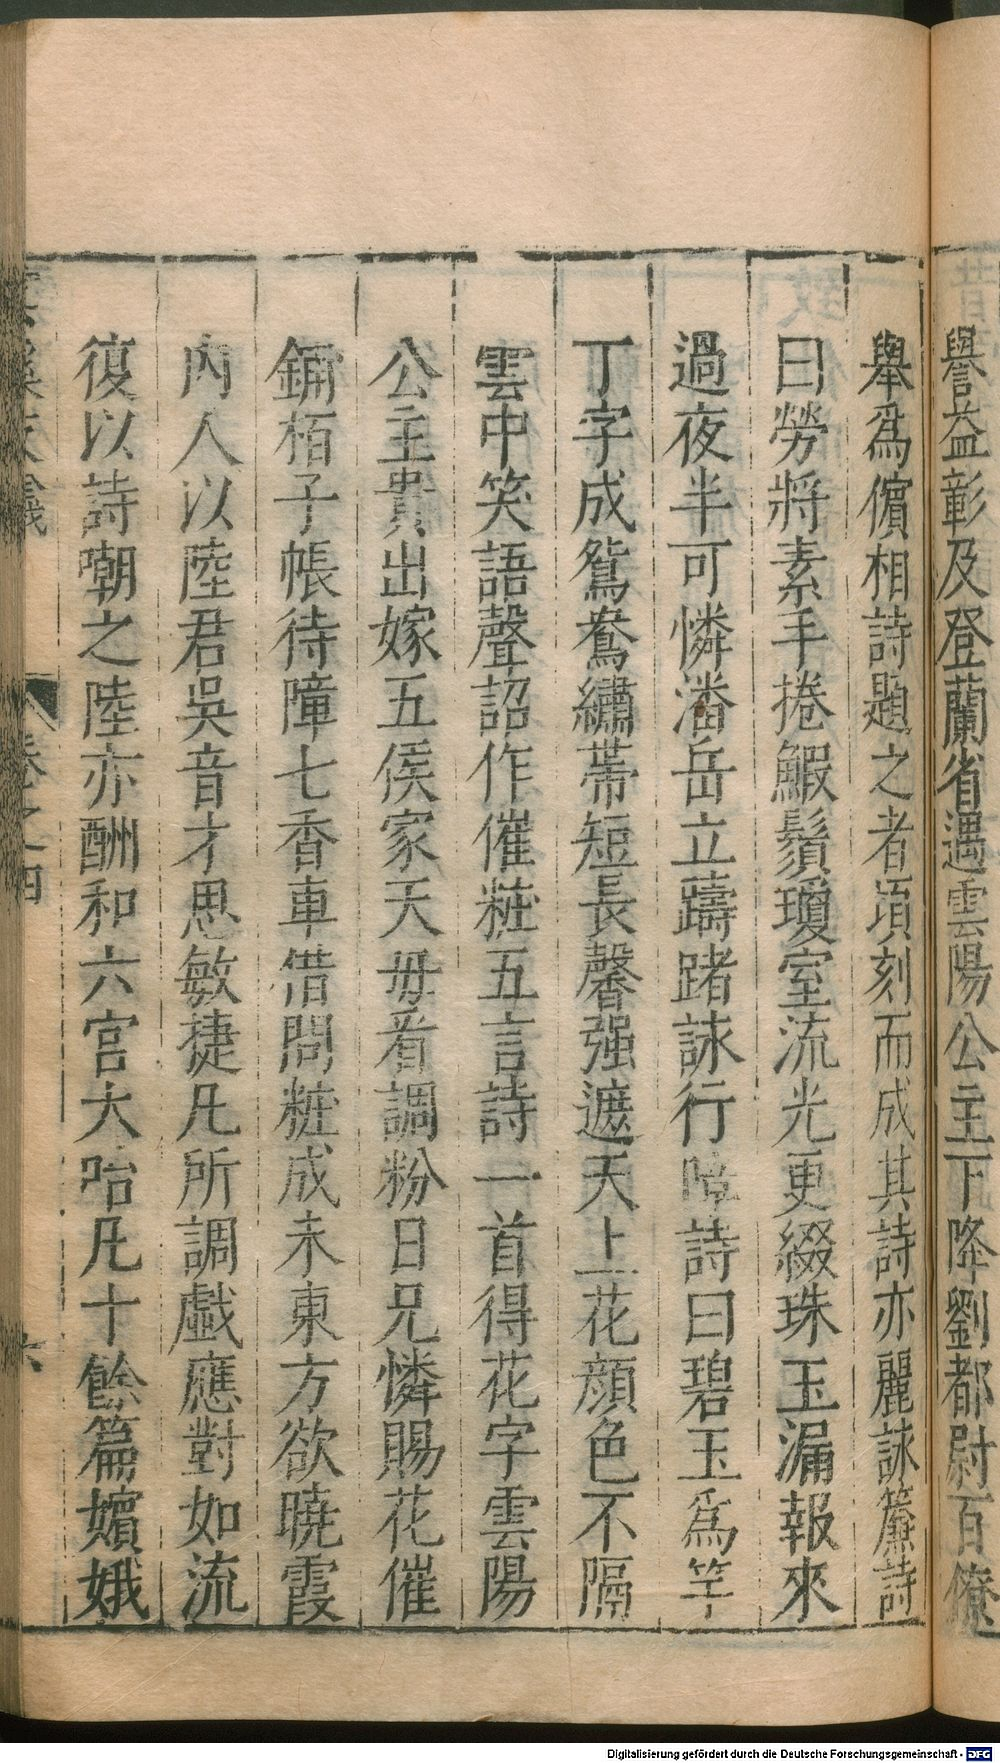 譽益彰及登蘭省遇雲陽公主下降劉都尉百僚
舉爲儐相詩題之者頃刻而成其詩亦麗詠簾詩
曰勞將素手捲鰕鬚瓊室流光更綴珠玉漏報來
過夜半可憐潘岳立躊躇詠行障詩曰碧玉爲竿
丁字成鴛鴦繡帶短長馨强遮天上花顔色不隔
雲中笑語聲詔作催粧五言詩一首得花字雲陽
公主貴出嫁五侯家天母看調粉日兄憐賜花催
鋪栢子帳待障七香車借問粧成未東方欲曉霞
內人以陸君吳音才思敏捷凡所調戯應對如流
復以詩嘲之陸亦酬和六宮大咍凡十餘篇嬪娥
雲溪友議 卷之四 六
Digitalisierung gefördert durch die Deutsche Forschungsgemeinschaft - DFG